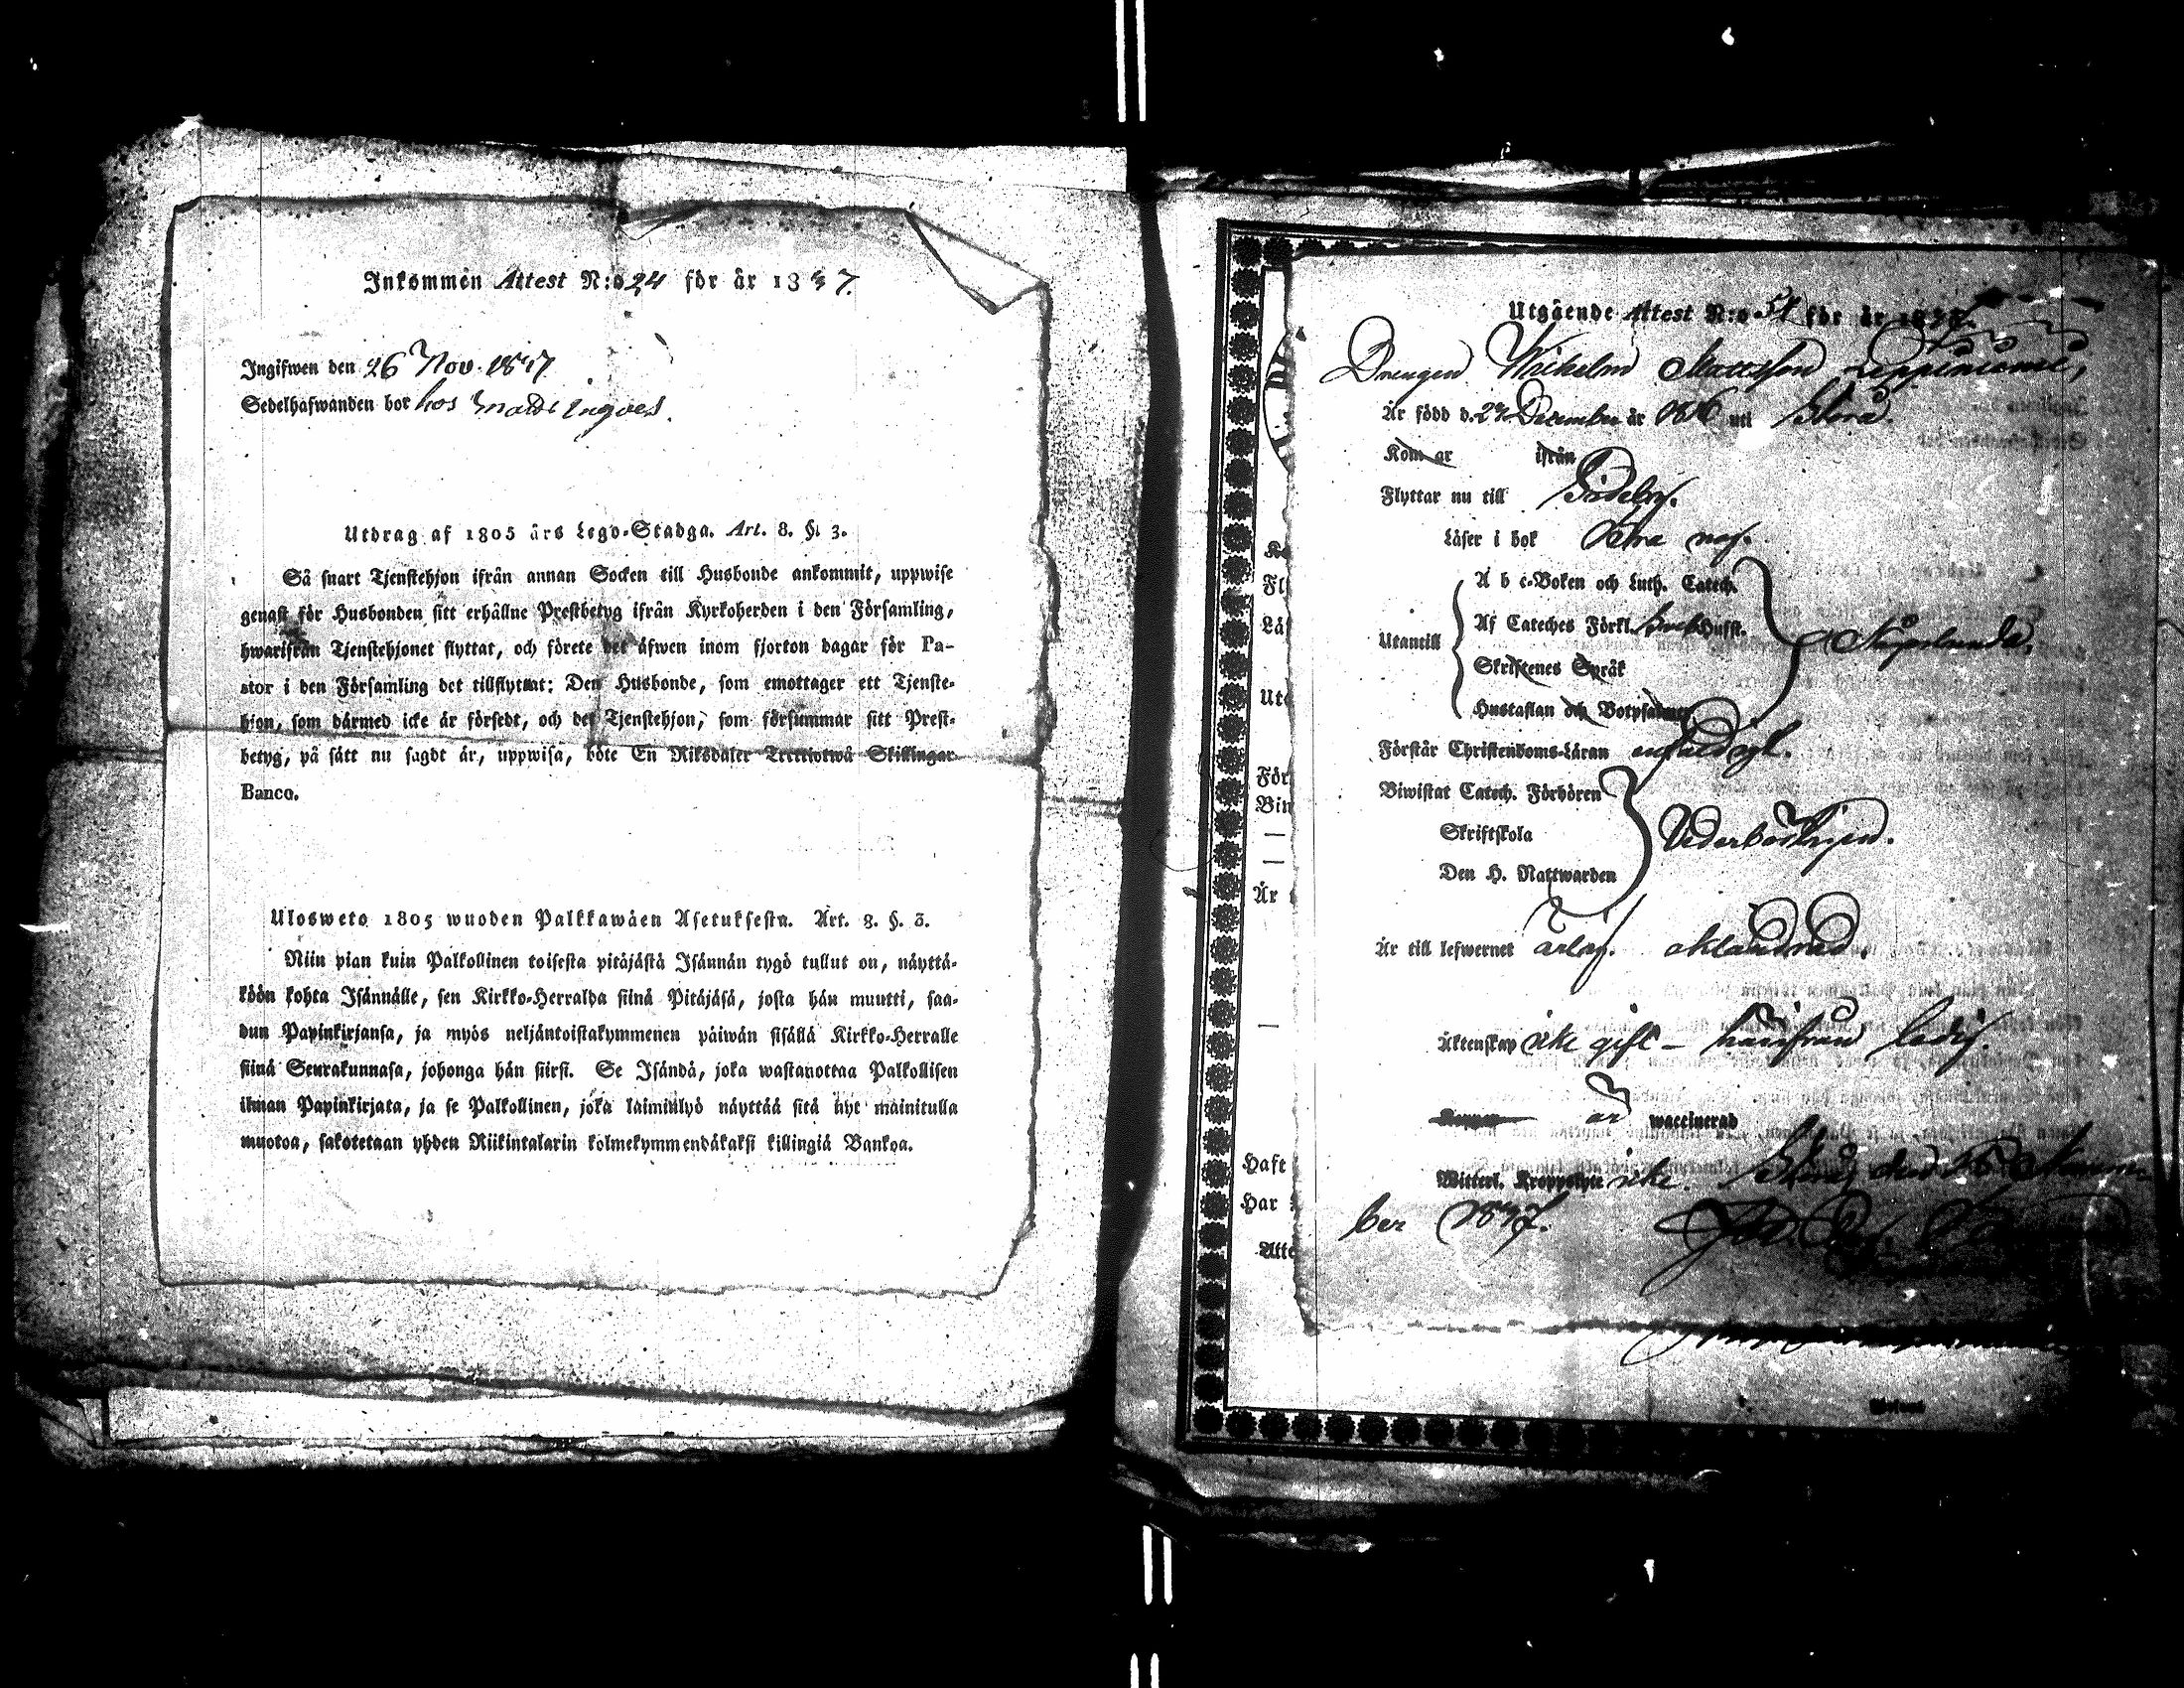 Inkommen Attest N:o 24 för år 1837.
Ingifwen den 26 Nov. 1837
Sedelhafwanden bor hos
Utdrag af 1805 års Lego-Stadga. Art. 8. §. 3.
Så snart Tjenstehjon ifrån annan Socken till Husbonde ankommit, uppwise
genast för Husbonden sitt erhållne Prestbetyg ifrån Kyrkoherden i den Församling,
hwarifrån Tjenstehjonet flyttat, och förete det äfwen inom fjorton dagar för Pa-
stor i den Församling det tillflyttat: Den Husbonde, som emottager ett Tjenste-
hjon, som därmed icke är försedt, och det Tjenstehjon, som försummar sitt Prest-
betyg, på sätt nu sagdt är, uppwisa, böte En Riksdaler Trettiotwå Skillingar
Banco.
Ulosweto 1805 wuoden Palkkawäen Asetuksesta. Art. 8. §. 3.
Niin pian kuin Palkollinen toisesta pitäjästä Isännän tygö tullut on, näyttä-
köön kohta Isännälle, sen Kirkko-Herralda siinä Pitäjäsä, josta hän muutti, saa-
dun Papinkirjansa, ja myös neljäntoistakymmenen päiwän sisällä Kirkko-Herralle
siinä Seurakunnasa, johonga hän siirsi. Se Isändä, joka wastanottaa Palkollisen
ilman Papinkirjata, ja se Palkollinen, joka laiminlyö näyttää sitä nyt mainitulla
muotoa, sakotetaan yhden Riikintalarin kolmekymmendäkaksi killingiä Bankoa.
Utgående Attest N:o 54 för år
Drengen Wilhelm Mattsson
Är född d. December år 1816 uti
Kom år ifrån
Flyttar nu till
Läser i bok
A b c-Boken och Luth. Catech.
Utantill Af Cateches Förkl. Hufst.
Skriftenes Språk
Hustaflan och Botpsalmer
Förstår Christendoms-Läran enfaldigt.
Biwistat Catech. Förhören
Skriftskola Vederbörligen.
Den H. Nattwarden
Är till lefwernet ärlig. oklandrad.
Äktenskap icke gift – härifrån ledig.
är waccinerad
Witterl. Kroppslyte icke. den
ber 1837.
Fl
Lä
För
Är
Haft
Har
Atte